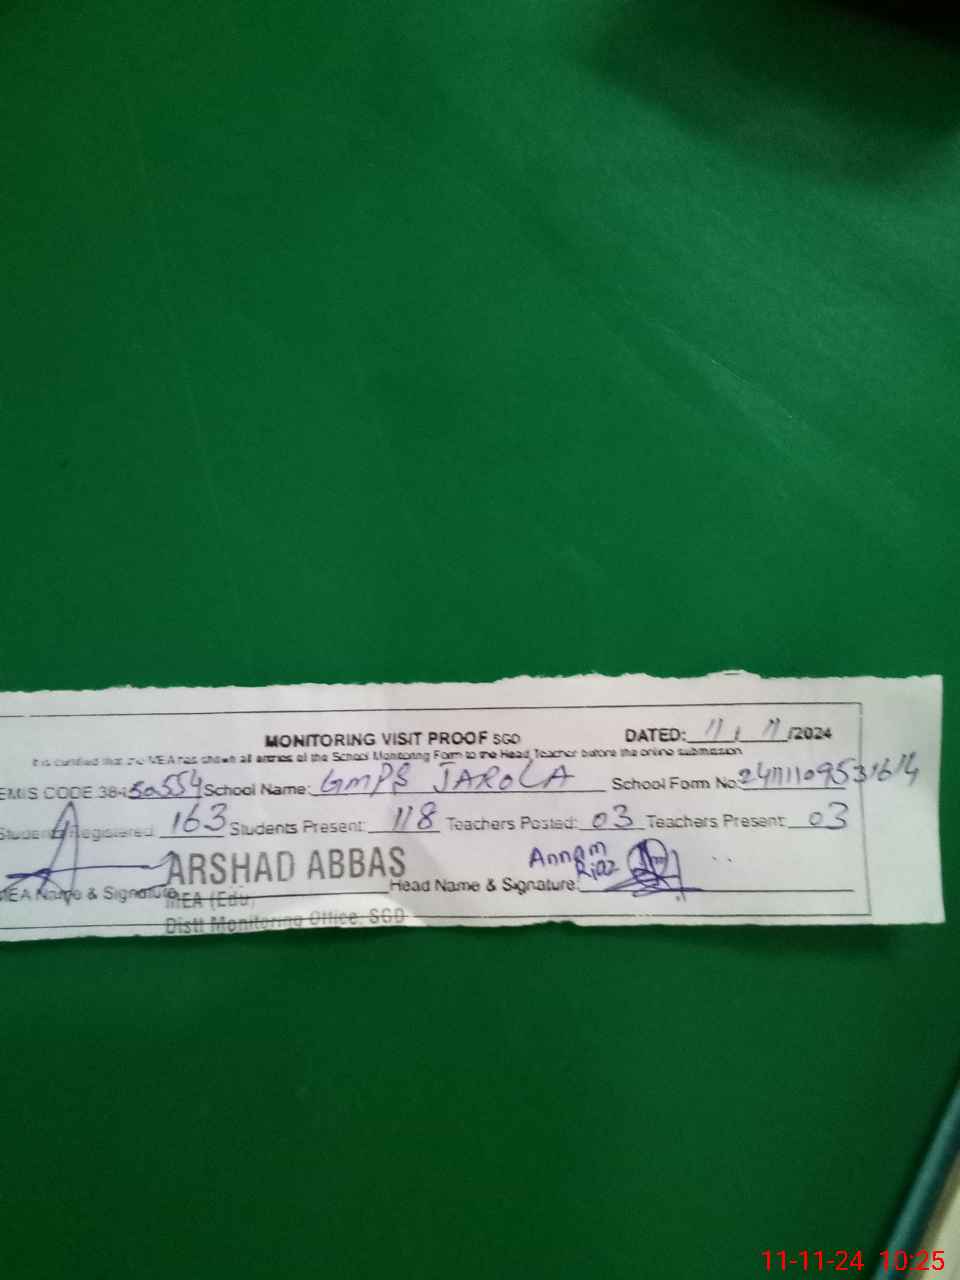 MONITORING VISIT PROOF SGD
DATED: 11 / 11 /2024
It is certified that the MEA has shown all entries of the School Monitoring Form to the Head Teacher before the online submission
EMIS CODE 384 50554 School Name: GMPS JAROLA School Form No:
Students Registered: 163 Students Present: 118 Teachers Posted: 03 Teachers Present: 03
ARSHAD ABBAS
Annam Riaz
MEA Name & Signature Head Name & Signature:
MEA (Edu)
Distt Monitoring Office, SGD
11-11-24 10:25